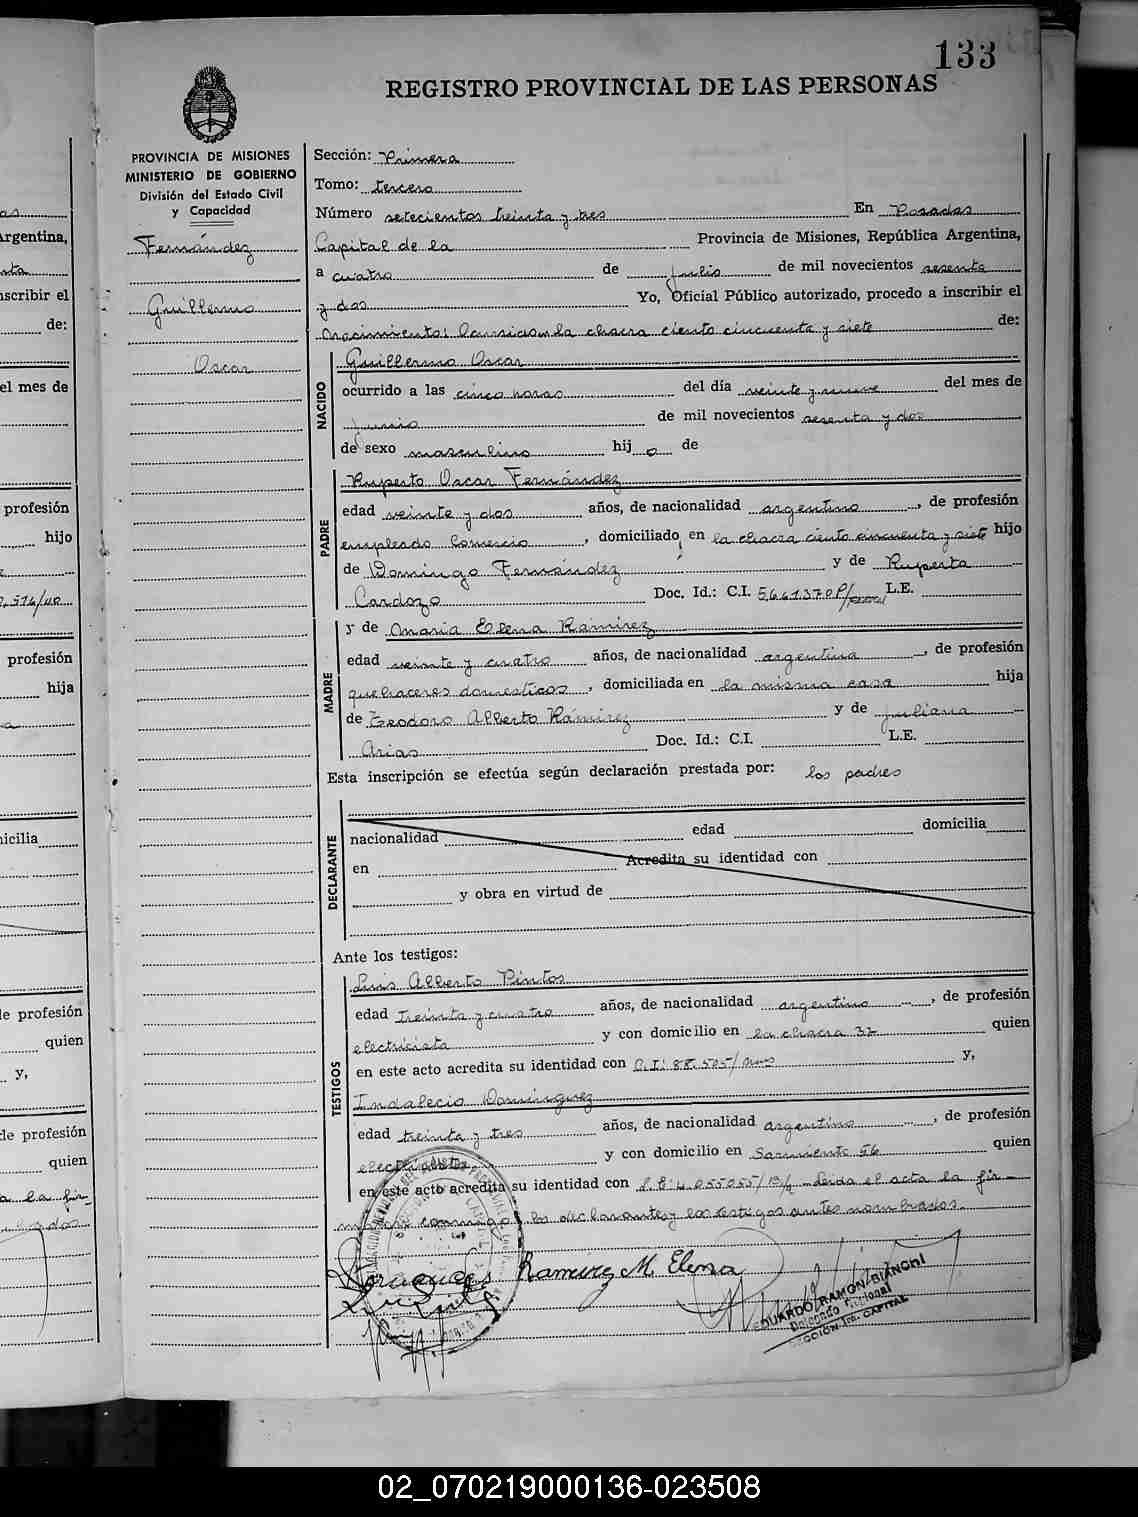 133
REGISTRO PROVINCIAL DE LAS PERSONAS
PROVINCIA DE MISIONES
MINISTERIO DE GOBIERNO
División del Estado Civil
y Capacidad
Fernández
Guillermo
Oscar
Sección: Primera
Tomo: tercero
Número setecientos treinta y tres En Posadas
Capital de la Provincia de Misiones, República Argentina,
a cuatro de Julio de mil novecientos sesenta
y dos Yo, Oficial Público autorizado, procedo a inscribir el
nacimiento: la chacra ciento cincuenta y siete de:
NACIDO
Guillermo Oscar
ocurrido a las cinco horas del día veinte y nueve del mes de
Junio de mil novecientos sesenta y dos
de sexo masculino hij o de
PADRE
Ruperto Oscar Fernández
edad veinte y dos años, de nacionalidad argentino, de profesión
empleado Comercio, domiciliado en la chacra ciento cincuenta y siete hijo
de Domingo Fernández y de Ruperta
Cardozo Doc. Id.: C.I. 5.661.370 P/ L.E.
MADRE
y de Maria Elena Ramirez
edad veinte y cuatro años, de nacionalidad argentina, de profesión
quehaceres domesticos, domiciliada en la misma casa hija
de Teodoro Alberto Ramirez y de Juliana
Arias Doc. Id.: C.I. L.E.
Esta inscripción se efectúa según declaración prestada por: los padres
DECLARANTE
nacionalidad edad domicilia
en Acredita su identidad con
y obra en virtud de
Ante los testigos:
TESTIGOS
Luis Alberto Pintos
edad treinta y cuatro años, de nacionalidad argentino, de profesión
electricista y con domicilio en la chacra 32 quien
en este acto acredita su identidad con C.I: 88.505/ y,
Indalecio Dominguez
edad treinta y tres años, de nacionalidad argentino, de profesión
electricista y con domicilio en Sarmiento 56 quien
en este acto acredita su identidad con leida el acta la fir-
conmigo los declarantes y los testigos antes nombrados.
Ramirez M. Elena
EDUARDO RAMON BIANCHI
Delegado Regional
SECCIÓN 1ra. CAPITAL
Argentina,
inscribir el
de:
el mes de
profesión
hijo
profesión
hija
domicilia
de profesión
quien
y,
de profesión
quien
a la fir-
02_070219000136-023508